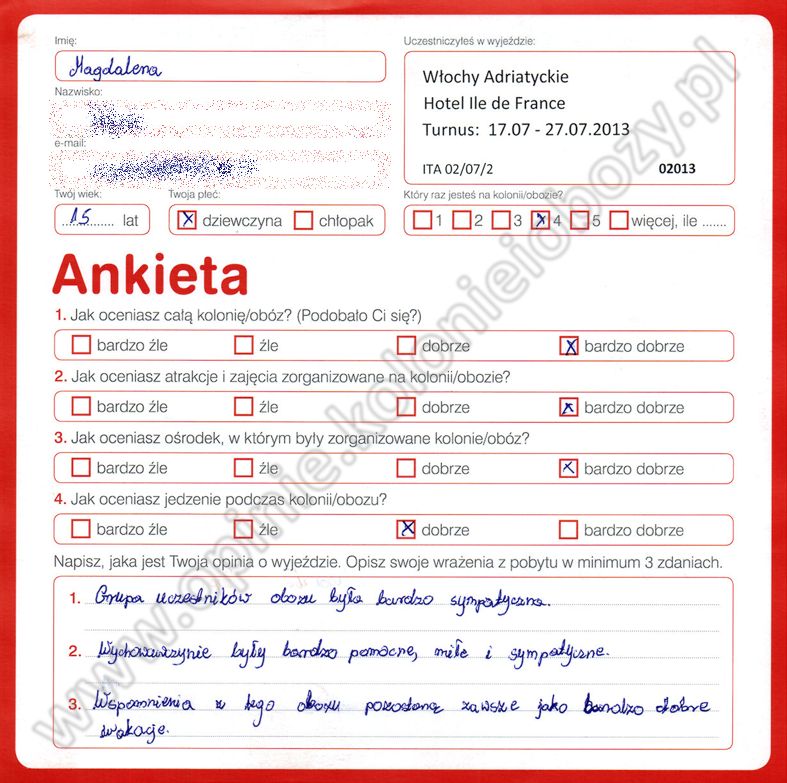 Imię:
Magdalena
Nazwisko:
e-mail:
Twój wiek:
15 lat
Twoja płeć:
dziewczyna chłopak
Uczestniczyłeś w wyjeździe:
Włochy Adriatyckie
Hotel Ile de France
Turnus: 17.07 - 27.07.2013
ITA 02/07/2 02013
Który raz jesteś na kolonii/obozie?
1 2 3 4 5 więcej, ile .......
Ankieta
1. Jak oceniasz całą kolonię/obóz? (Podobało Ci się?)
bardzo źle źle dobrze bardzo dobrze
2. Jak oceniasz atrakcje i zajęcia zorganizowane na kolonii/obozie?
bardzo źle źle dobrze bardzo dobrze
3. Jak oceniasz ośrodek, w którym były zorganizowane kolonie/obóz?
bardzo źle źle dobrze bardzo dobrze
4. Jak oceniasz jedzenie podczas kolonii/obozu?
bardzo źle źle dobrze bardzo dobrze
Napisz, jaka jest Twoja opinia o wyjeździe. Opisz swoje wrażenia z pobytu w minimum 3 zdaniach.
1. Grupa uczestników obozu była bardzo sympatyczna.
2. Wychowawczynie były bardzo pomocne, miłe i sympatyczne.
3. Wspomnienia z tego obozu pozostaną zawsze jako bardzo dobre
wakacje.
www.opinie.kolonieiobozy.pl